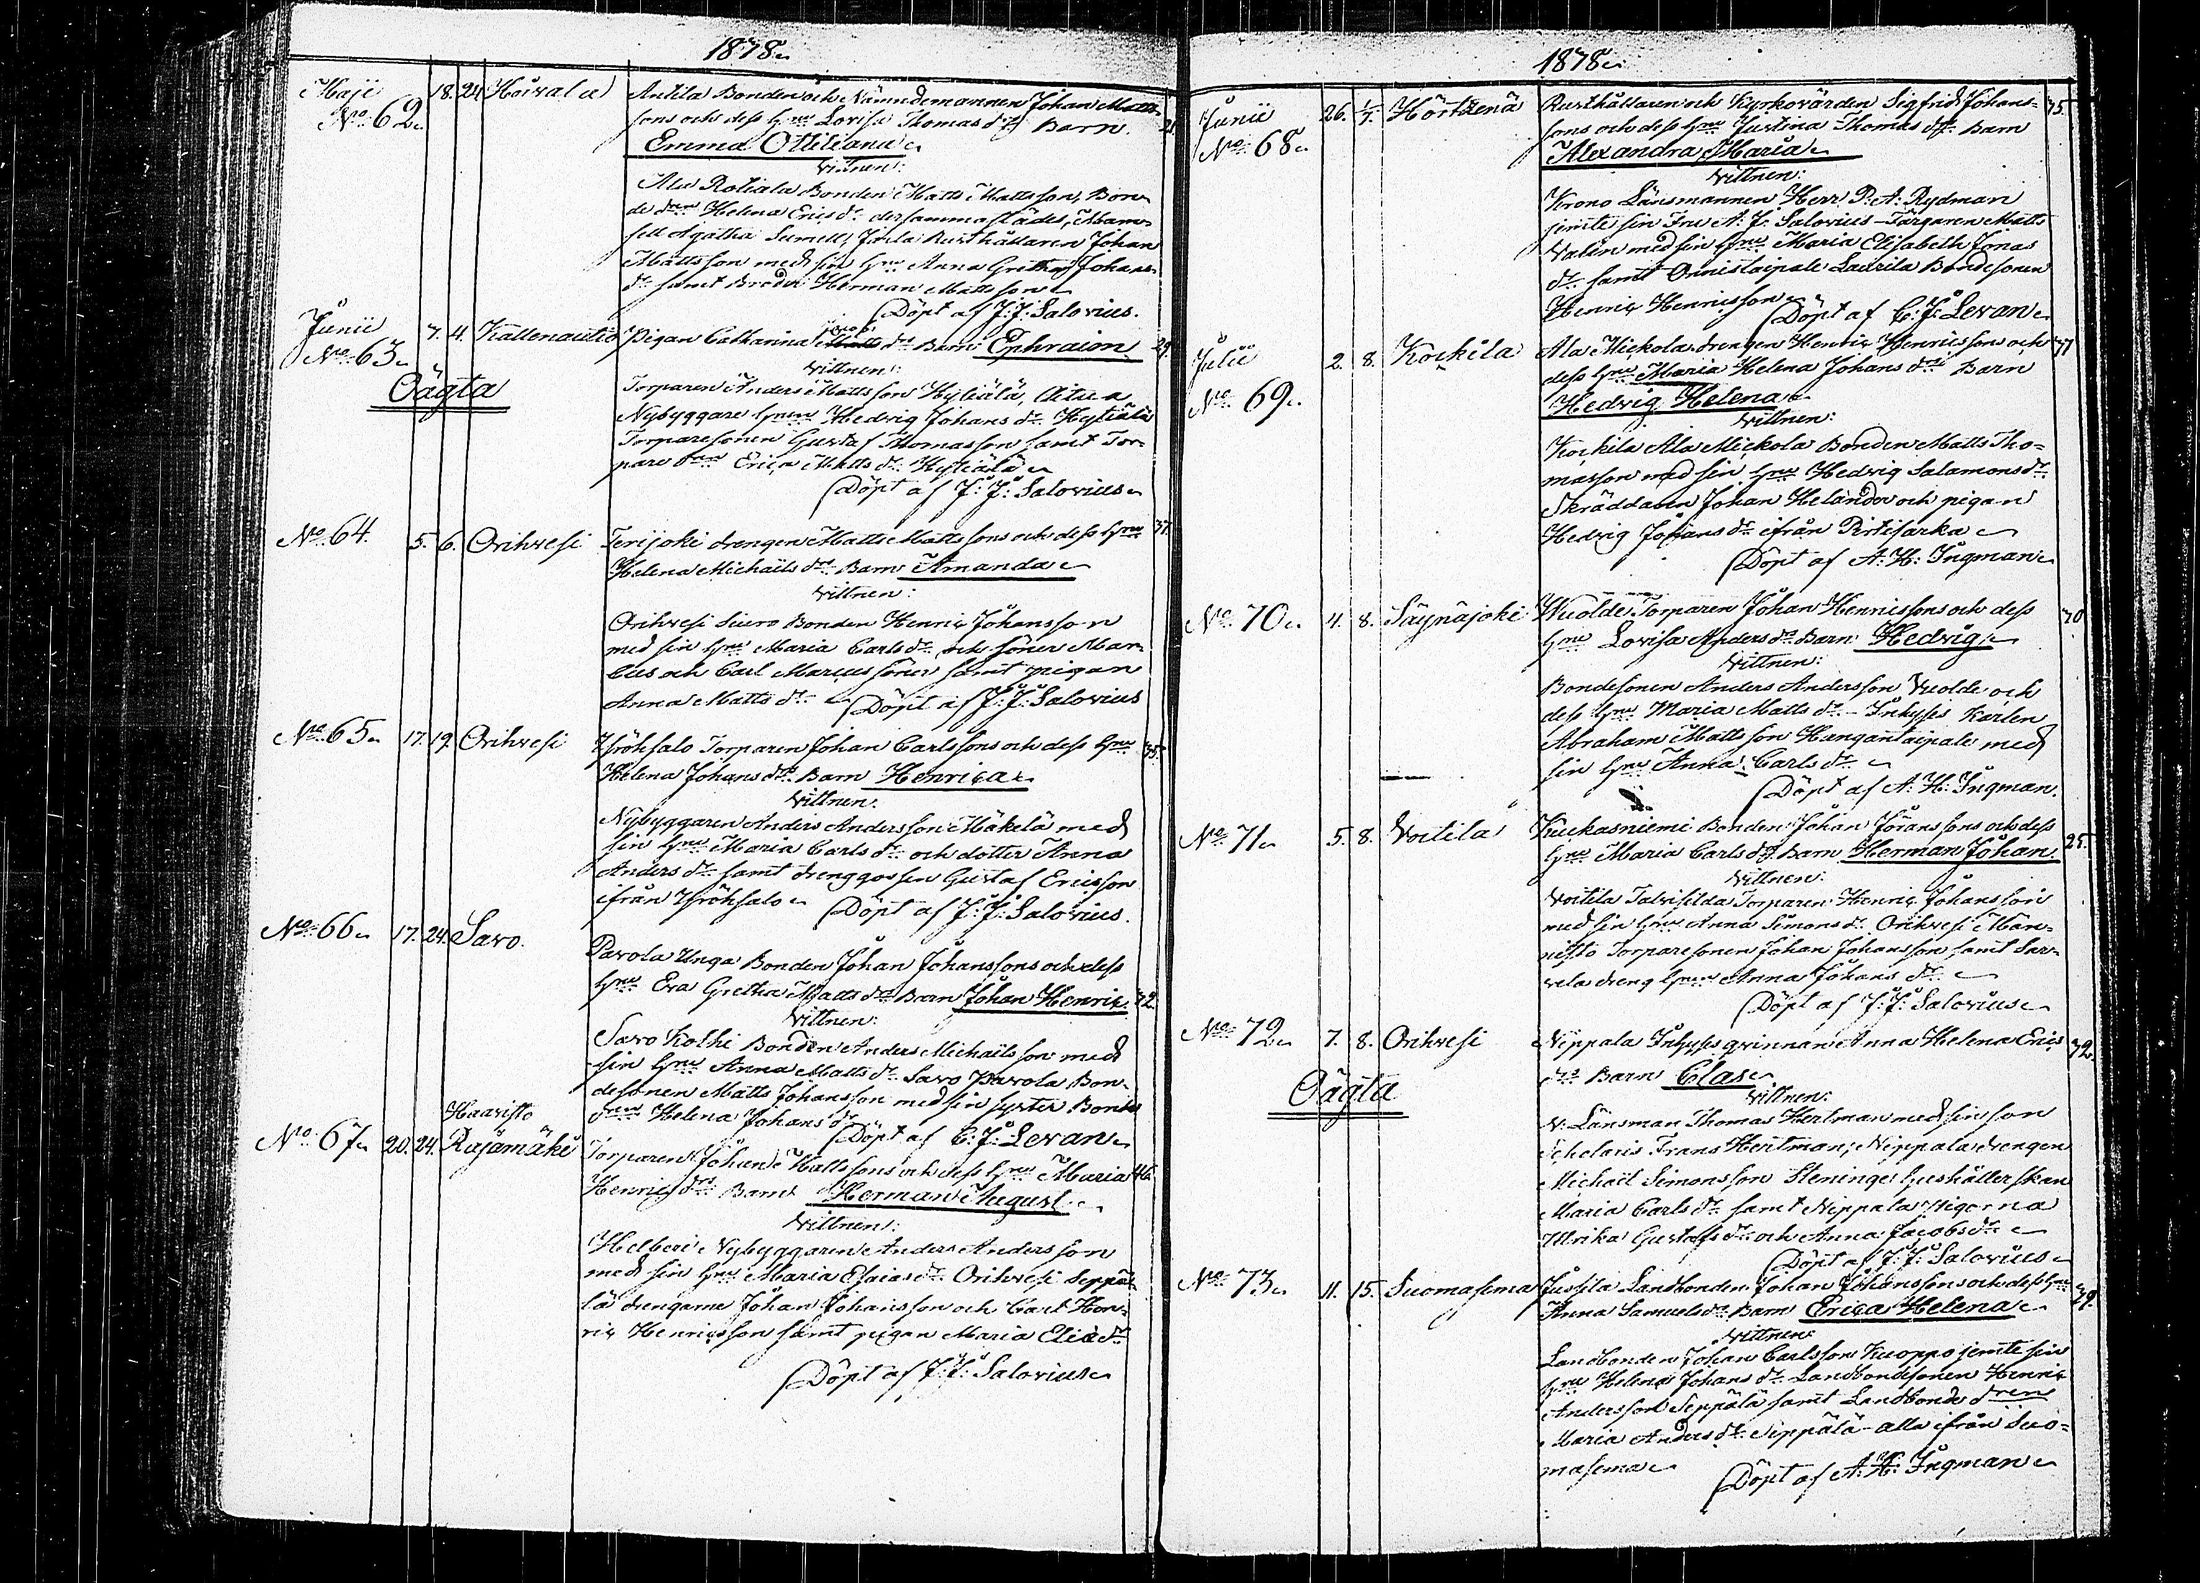 1878
Maji
No 62
18. 24 Hoivala
Antila Bonden och Nämndemannen Johan Matts
sons och dess Hru Lovisa Thomas dr Barn 28
Emma Otteliana
Vittnen:
Ala Rotiala Bonden Matts Mattsson, Bon
de dren Helena Erics dr dersammastädes, Mam
sell Agatha Rusthållaren Johan
Mattsson med sin Hru Anna Gretha Johans
dr samt Brodr Herman Mattsson
Döpt af J: J: Salovius.
Junii
No 63
Oägta
7. 4. Kallenautio
Pigan Catharina dr Barn Ephraim 29
Vittnen:
Torparen Anders Mattsson Hytiälä,
Nybyggare Hrun Hedvig Johans dr Hytiälä
Torparesonen Gustaf Thomasson samt Tor-
pare dren Erica Matts dr Hytiälä
Döpt af J: J: Salovius
No 64.
5. 6. Orihvesi
Terijoki drengen Matts Mattssons och dess Hru 37.
Helena Michaëls dr Barn Amanda
Vittnen:
Orihvesi Siuro Bonden Henric Johansson
med sin Hru Maria Carls dr och söner Mar
cus och Carl Marcussöner samt pigan
Anna Matts dr
Döpt af J: J: Salovius
No 65
17. 19. Orihvesi
Yröhsalo Torparen Johan Carlssons och dess Hru 35.
Helena Johans dr Barn Henrica
Vittnen:
Nybyggaren Anders Andersson Mäkelä med
sin Hru Maria Carls dr och dotter Anna
Anders dr samt drenggossen Gustaf Ericsson
ifrån Yröhsalo
Döpt af J: J: Salovius.
No 66
17. 24. Savo.
Pavola Unga Bonden Johan Johanssons och dess
Hru Eva Gretha Matts dr Barn Johan Henric 22.
Vittnen:
Savo Kolhi Bonden Anders Michaëlsson med
sin Hru Anna Matts dr Savo Pavola Bon-
desonen Matts Johansson med sin syster Bonde
dren Helena Johans dr
Döpt af C: J: Levan
No 67
20. 24. Haavisto
Rajamäki
Torparen Johan Mattssons och dess Hru Maria 46.
Henrics dr Barn Herman August
Vittnen:
Helberi Nybyggaren Anders Andersson
med sin Hru Maria Esaias dr Orihvesi Seppä
lä drengarne Johan Johansson och Carl Hen-
ric Henricsson samt pigan Maria Elias dr
Döpt af J: J: Salovius
1878
Junii
No 68
26. 1/7. Hörtsenä
Rusthållaren och Kyrkovärden Sigfrid Johans- 35.
sons och dess Hru Justina Thomas dr Barn
Alexandra Maria
Vittnen:
Krono Länsmannen Herr P. A. Rydman
jemte sin Fru A. J. Salovius - Färgaren Matts
Valin med sin Hru Maria Elisabeth Jonas
dr samt Onnistaipale Laurila Bondesonen
Henric Henricsson
Döpt af C: J: Levan
Julii
No 69
2. 8. Kockila
Ala Mickola drengen Henric Henricssons och 37
dess Hru Maria Helena Johans dr Barn
Hedvig Helena
Vittnen:
Kockila Ala Mickola Bonden Matts Tho-
masson med sin Hru Hedvig Salamons dr
Skräddaren Johan Helander och pigan
Hedvig Johans dr ifrån Pirtisarka
Döpt af A: H: Ingman
No 70
4. 8. Säynäjoki
Wuolde Torparen Johan Henricssons och dess 30
Hru Lovisa Anders dr Barn: Hedvig
Vittnen:
Bondesonen Anders Andersson Vuolde och
dess Hru Maria Matts dr - Inhyses Karlen
Abraham Mattsson Hangantaipale med
sin Hru Anna Carls dr
Döpt af A: H: Ingman.
No 71
5. 8. Voitila
Kuukasniemi Bonden Johan Göranssons och dess
Hru Maria Carls dr Barn Herman Johan. 25.
Vittnen:
Voitila Talvisilda Torparen Henric Johansson
med sin Hru Anna Simons dr Orihvesi Män-
nistö Torparesonen Johan Johansson samt Sar-
vela dreng Hrun Anna Johans dr
Döpt af J: J: Salovius
No 72
Oägta
7. 8. Orihvesi
Nippala Inhyses qvinnan Anna Helena Erics 32
drs Barn Clas
Vittnen:
V. Länsman Thomas Hertman med sin son
Scholaris Frans Hertman, Nippala drengen
Michaël Simonsson Steninge hushållerskan
Maria Carls dr samt Nippala Pigorna
Ulrika Gustafs dr och Anna Jacobs dr
Döpt af J: J: Salovius
No 73
11. 15. Suomasema
Jussila Landbonden Johan Johanssons och dess Hru 39.
Anna Samuels dr Barn Erica Helena
Vittnen:
Landbonden Johan Carlsson Kuoppo jemte sin
Hru Helena Johans dr Landbondesonen Henric
Andersson Seppälä samt Landbonde dren
Maria Anders dr Seppälä - alla ifrån Suo-
masema
Döpt af A: H: Ingman